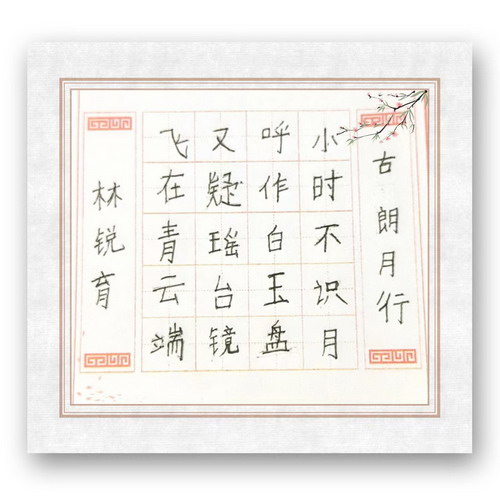 古朗月行
小时不识月
呼作白玉盘
又疑瑶台镜
飞在青云端
林锐育